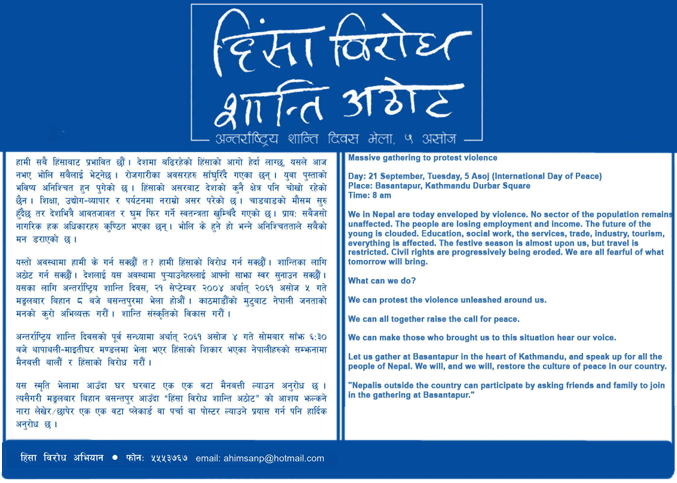 हिंसा विरोध
शान्ति अठोट
अन्तर्राष्ट्रिय शान्ति दिवस मेला, ५ असोज
हामी सबै हिंसाबाट प्रभावित छौं । देशमा बढिरहेको हिंसाको आगो हेर्दा लाग्छ, यसले आज
नभए भोलि सबैलाई भेट्नेछ । रोजगारीका अवसरहरु साँघुरिँदै गएका छन् । युवा पुस्ताको
भविष्य अनिश्चित हुन पुगेको छ । हिंसाको असरबाट देशको कुनै क्षेत्र पनि चोखो रहेको
छैन । शिक्षा, उद्योग-व्यापार र पर्यटनमा नराम्रो असर परेको छ । चाडवाडको मौसम सुरु
हुँदैछ तर देशभित्रै आवतजावत र घुम फिर गर्ने स्वतन्त्रता खुम्चिँदै गएको छ । प्राय: सबैजसो
नागरिक हक अधिकारहरु कुण्ठित भएका छन् । भोलि के हुने हो भन्ने अनिश्चितताले सबैको
मन डराएको छ ।
यस्तो अवस्थामा हामी के गर्न सक्छौं त ? हामी हिंसाको विरोध गर्न सक्छौं । शान्तिका लागि
अठोट गर्न सक्छौं । देशलाई यस अवस्थामा पुऱ्याउनेहरुलाई आफ्नो साझा स्वर सुनाउन सक्छौं ।
यसका लागि अन्तर्राष्ट्रिय शान्ति दिवस, २१ सेप्टेम्बर २००४ अर्थात् २०६१ असोज ५ गते
मङ्गलबार बिहान ८ बजे बसन्तपुरमा भेला होऔं । काठमाडौंको मुटुबाट नेपाली जनताको
मनको कुरो अभिव्यक्त गरौं । शान्ति संस्कृतिको विकास गरौं ।
अन्तर्राष्ट्रिय शान्ति दिवसको पूर्व सन्ध्यामा अर्थात् २०६१ असोज ४ गते सोमबार साँझ ६:३०
बजे थापाथली-माइतीघर मण्डलमा भेला भएर हिंसाको शिकार भएका नेपालीहरुको सम्झनामा
मैनबत्ती बालौं र हिंसाको विरोध गरौं ।
यस स्मृति भेलामा आउँदा घर घरबाट एक एक वटा मैनबत्ती ल्याउन अनुरोध छ ।
त्यसैगरी मङ्गलबार बिहान बसन्तपुर आउँदा "हिंसा विरोध शान्ति अठोट" को आशय झल्कने
नारा लेखेर/छापेर एक एक वटा प्लेकार्ड वा पर्चा वा पोस्टर ल्याउने प्रयास गर्न पनि हार्दिक
अनुरोध छ ।
Massive gathering to protest violence
Day: 21 September, Tuesday, 5 Asoj (International Day of Peace)
Place: Basantapur, Kathmandu Durbar Square
Time: 8 am
We in Nepal are today enveloped by violence. No sector of the population remains
unaffected. The people are losing employment and income. The future of the
young is clouded. Education, social work, the services, trade, industry, tourism,
everything is affected. The festive season is almost upon us, but travel is
restricted. Civil rights are progressively being eroded. We are all fearful of what
tomorrow will bring.
What can we do?
We can protest the violence unleashed around us.
We can all together raise the call for peace.
We can make those who brought us to this situation hear our voice.
Let us gather at Basantapur in the heart of Kathmandu, and speak up for all the
people of Nepal. We will, and we will, restore the culture of peace in our country.
"Nepalis outside the country can participate by asking friends and family to join
in the gathering at Basantapur."
हिंसा विरोध अभियान ● फोन: ५५५३७६७ email: ahimsanp@hotmail.com